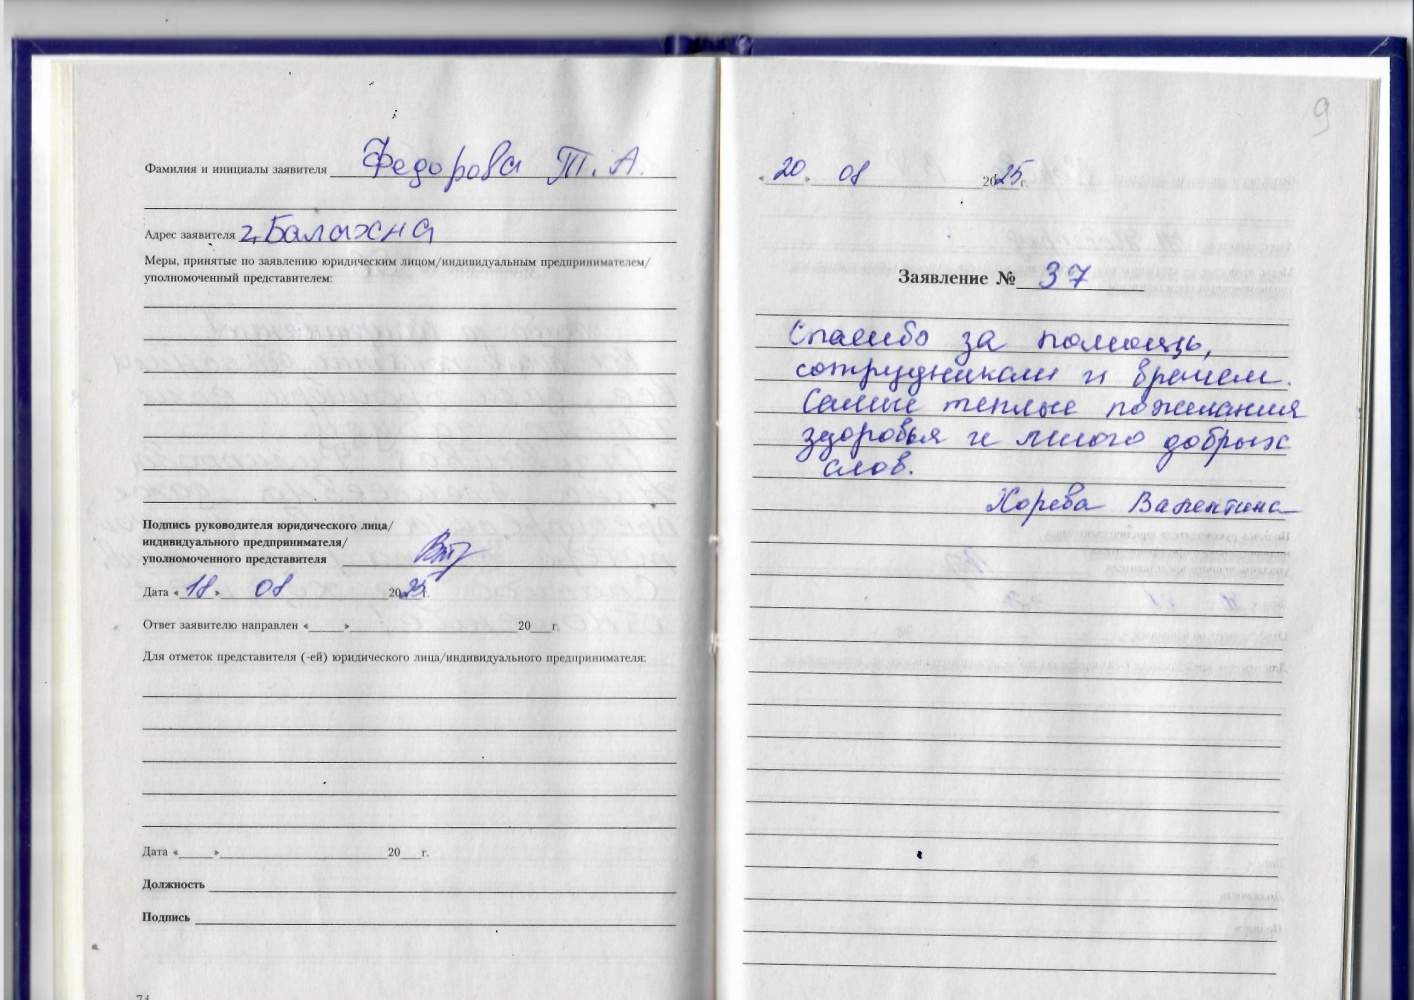 Фамилия и инициалы заявителя Федорова Т. А.
Адрес заявителя г. Балахна
Меры, принятые по заявлению юридическим лицом/индивидуальным предпринимателем/
уполномоченный представителем:
Подпись руководителя юридического лица/
индивидуального предпринимателя/
уполномоченного представителя
Дата «18» 08 2025г.
Ответ заявителю направлен «____»____ 20___г.
Для отметок представителя (-ей) юридического лица/индивидуального предпринимателя:
Дата «____»____ 20___г.
Должность
Подпись
74
9
«20» 08 2025г.
Заявление № 37
Спасибо за помощь,
сотрудникам и врачам.
Самые теплые пожелания
здоровья и много добрых
слов.
Хорева Валентина